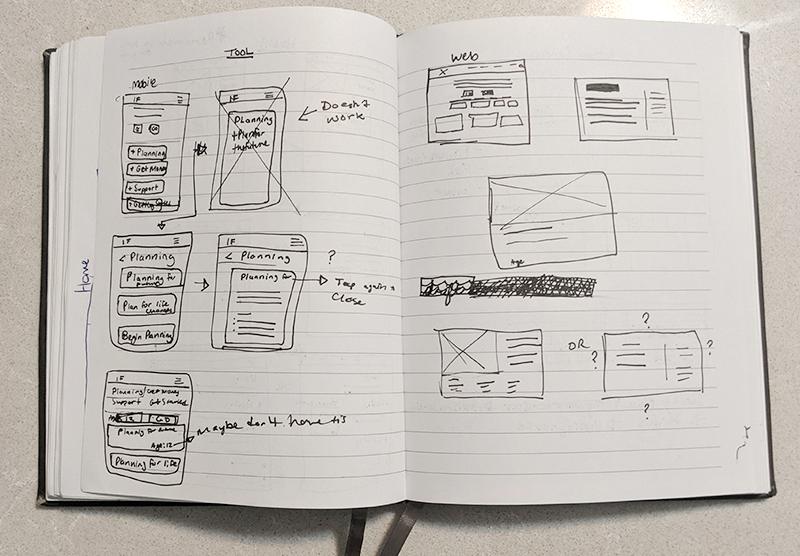 TOOL
Mobile
IF
+ Planning
+ Get Money
+ Support
IF
Planning
+ Plan for
the future
Doesn't
work
IF
< Planning
Planning for
future
Plan for life
changes
Begin Planning
IF
< Planning
Planning for
?
Tap again to
close
IF
Planning/Get Money
Support Get Started
Age: 12
Planning for life
Maybe don't have this
Home
Web
X
Age
OR
?
?
?
?